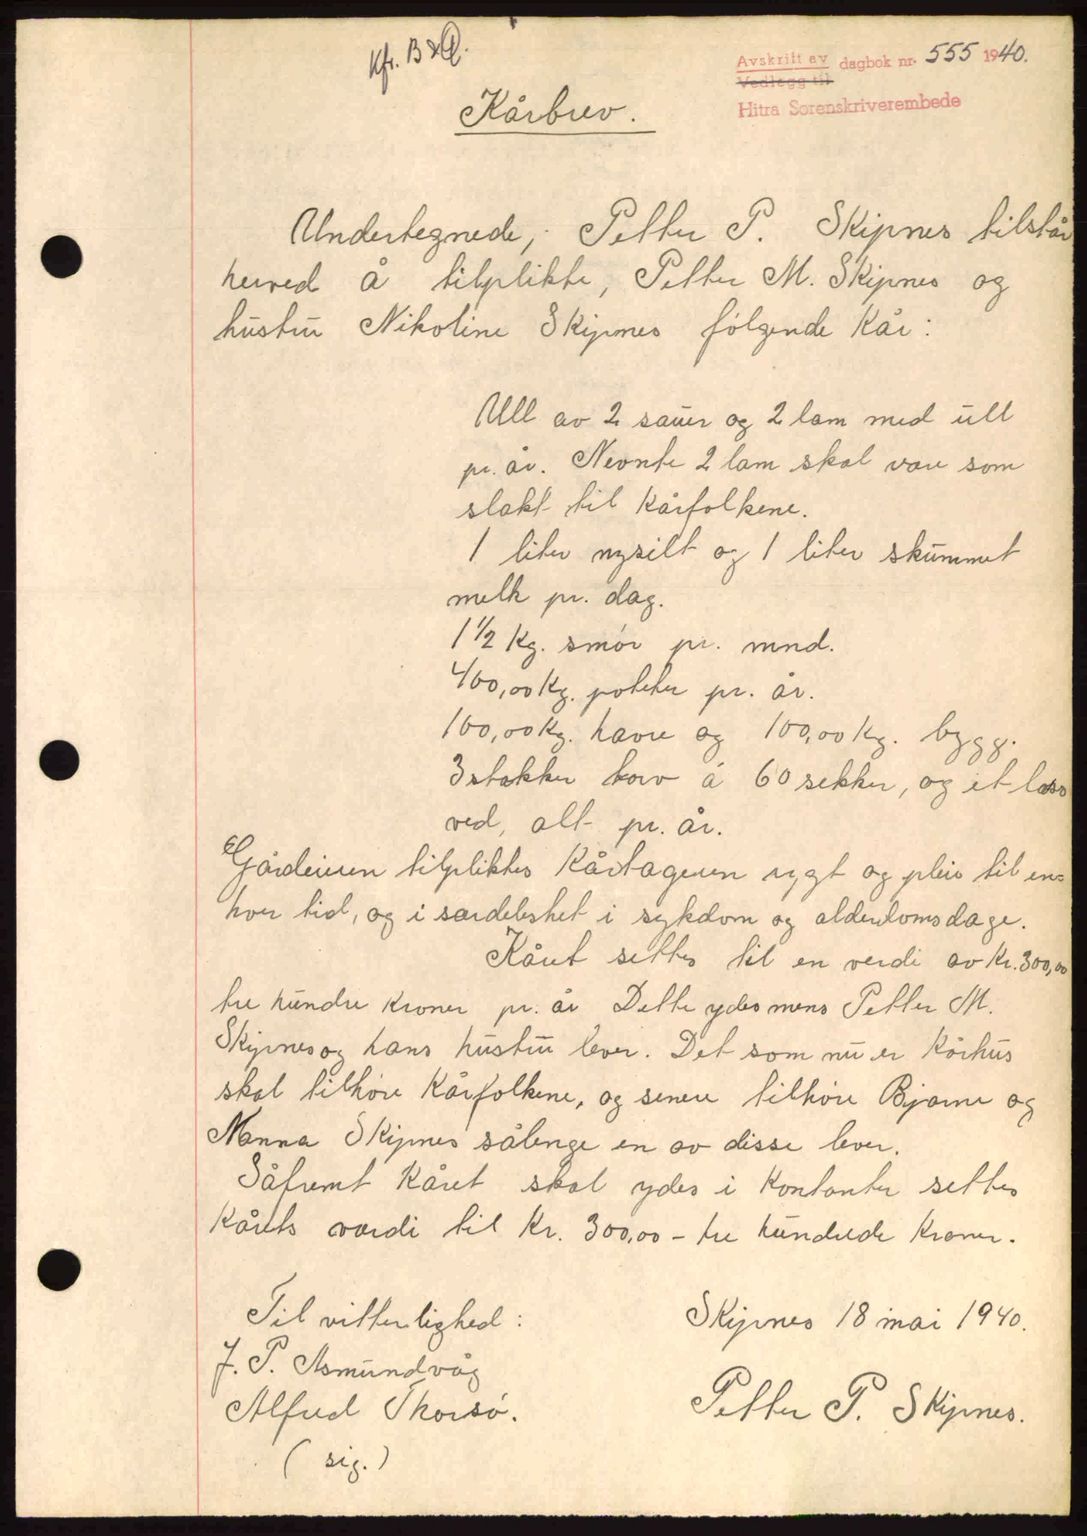 Kfr. B & Q.
Avskrift av dagbok nr. 555 1940.
Vedlegg til
Hitra Sorenskriverembede
Kårbrev.
Undertegnede, Petter P. Skipnes tilstår
herved å tilplikte, Petter M. Skipnes og
hustru Nikoline Skipnes følgende Kår:
Ull av 2 sauer og 2 lam med ull
pr. år. Nevnte 2 lam skal være som
slakt til Kårfolkene.
1 liter nysilt og 1 liter skummet
melk pr. dag.
1 1/2 Kg. smør pr. mnd.
400,00 Kg. poteter pr. år.
100,00 Kg. havre og 100,00 Kg. bygg.
3 stakker torv á 60 sekker, og et lass
ved, alt pr. år.
Gårdeieren tilpliktes Kårtageren rygt og pleie til en=
hver tid, og i særdeleshet i sykdom og alderdomsdage.
Kåret settes til en verdi av Kr. 300,00
tre hundre Kroner pr. år Dette ydes mens Petter M.
Skipnes og hans hustru lever. Det som nu er Kårhus
skal tilhøre Kårfolkene, og senere tilhøre Bjarne og
Nanna Skipnes sålenge en av disse lever.
Såfremt Kåret skal ydes i Kontanter settes
Kårets værdi til Kr. 300,00 - tre hundrede Kroner.
Til vitterlighed:
Skipnes 18 mai 1940.
J. P. Asmundvåg
Alfred Thorsø.
Petter P. Skipnes.
( sig. )